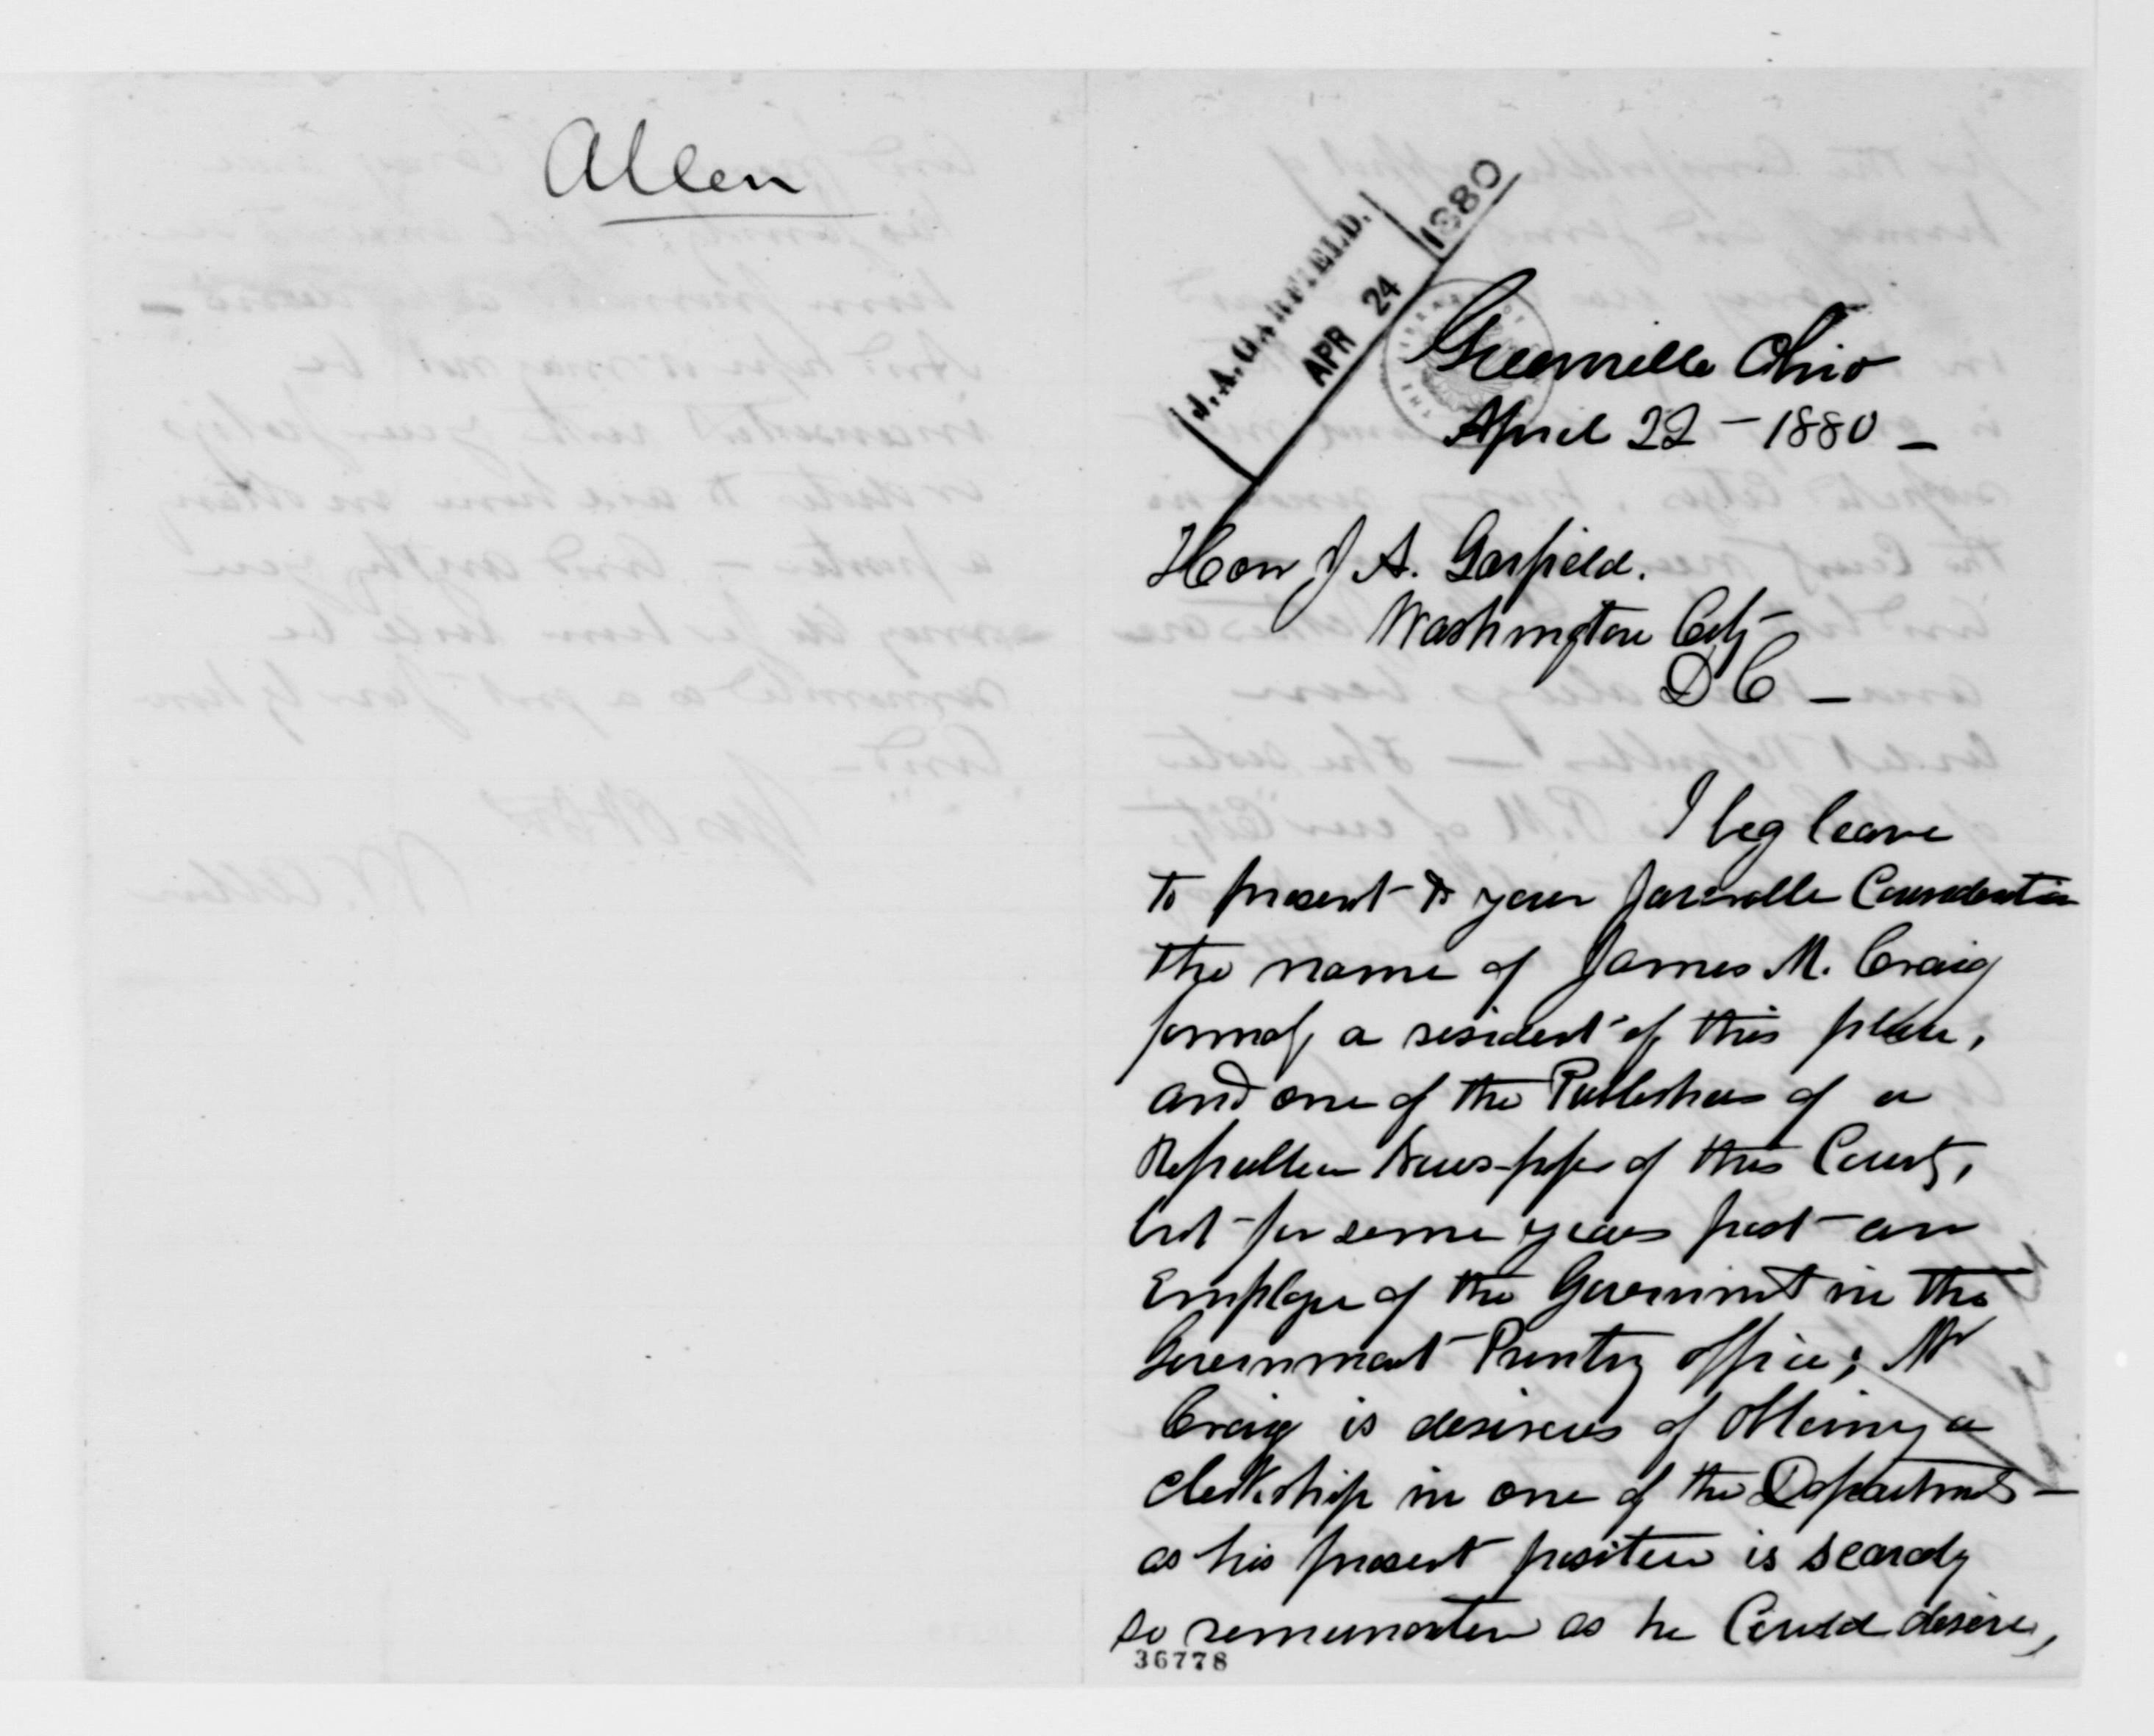 Allen
J. A. GARFIELD.
APR 24 1880
Greenville Ohio
April 22 - 1880 -
Hon J A. Garfield.
Washington City
D C -
I beg leave
to present to your favorable Consideration
the name of James M. Craig
formerly a resident of this place,
and one of the Publishers of a
Republican News-paper of this County,
but for some years past an
Employe of the Government in the
Government Printing office; Mr
Craig is desirous of obtaining a
clerkship in one of the Departments -
as his present position is scarcely
so remunerative as he Could desire,
36778